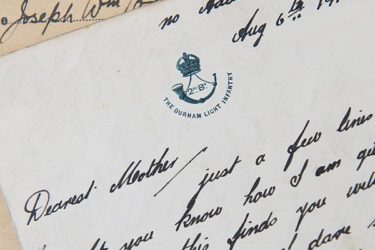 Joseph Wm
no
Aug 6th 19
2nd Bn
THE DURHAM LIGHT INFANTRY
Dearest Mother/ just a few lines
you know how I am qu
this finds you wel
I dare s